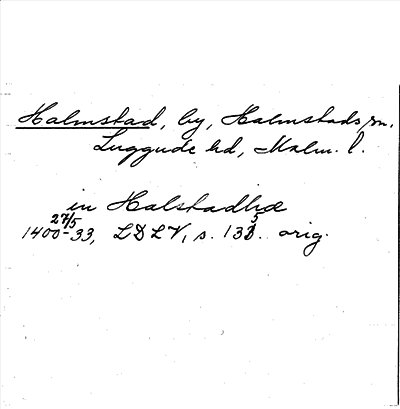 Halmstad, by, Halmstads sn.
Luggude hd, Malm. l.
in Halstadhæ
27/5
1400-33, LDLV, s. 135. orig.